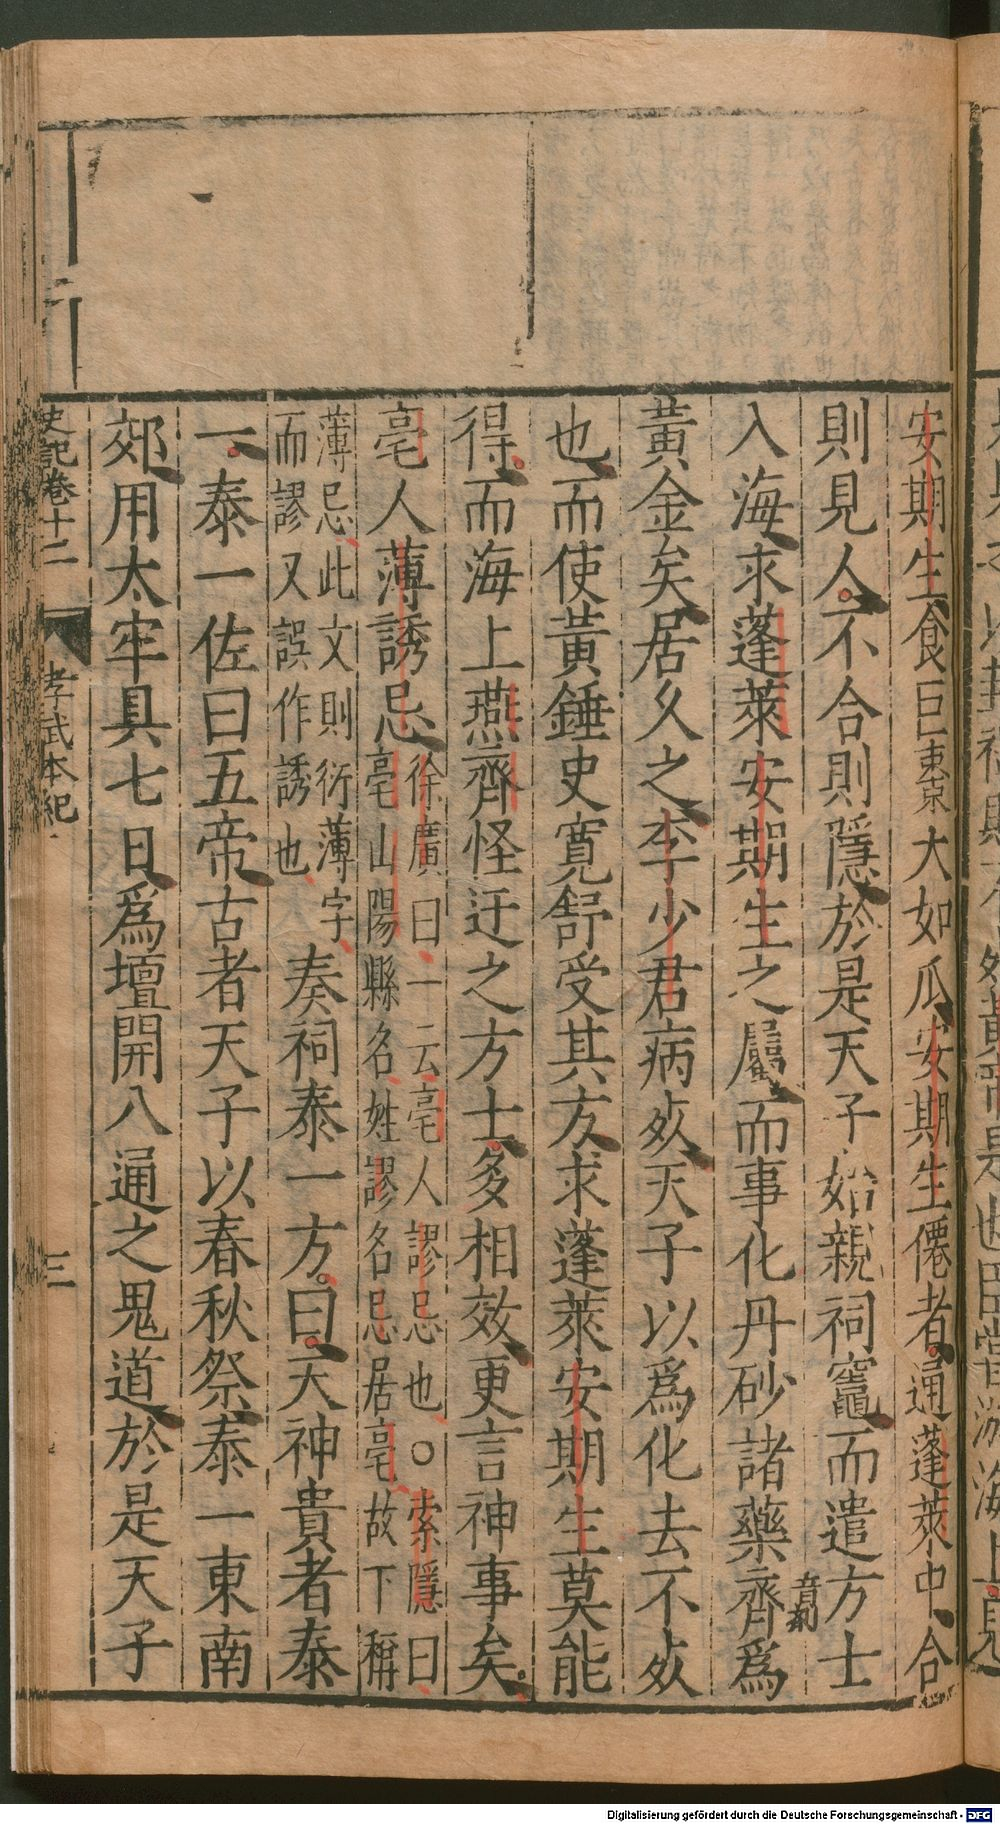 安期生食巨棗大如瓜安期生僊者通蓬萊中合
則見人不合則隱於是天子始親祠竈而遣方士
入海求蓬萊安期生之屬而事化丹砂諸藥齊爲
音劑
黃金矣居久之李少君病死天子以爲化去不死
也而使黃錘史寬舒受其方求蓬萊安期生莫能
得而海上燕齊怪迂之方士多相效更言神事矣
亳人薄誘忌
徐廣曰一云亳人謬忌也○索隱曰
亳山陽縣名姓謬名忌居亳故下稱
薄忌此文則衍薄字
而謬又誤作誘也
奏祠泰一方曰天神貴者泰
一泰一佐曰五帝古者天子以春秋祭泰一東南
郊用太牢具七日爲壇開八通之鬼道於是天子
史記卷十二 孝武本紀 三
Digitalisierung gefördert durch die Deutsche Forschungsgemeinschaft - DFG